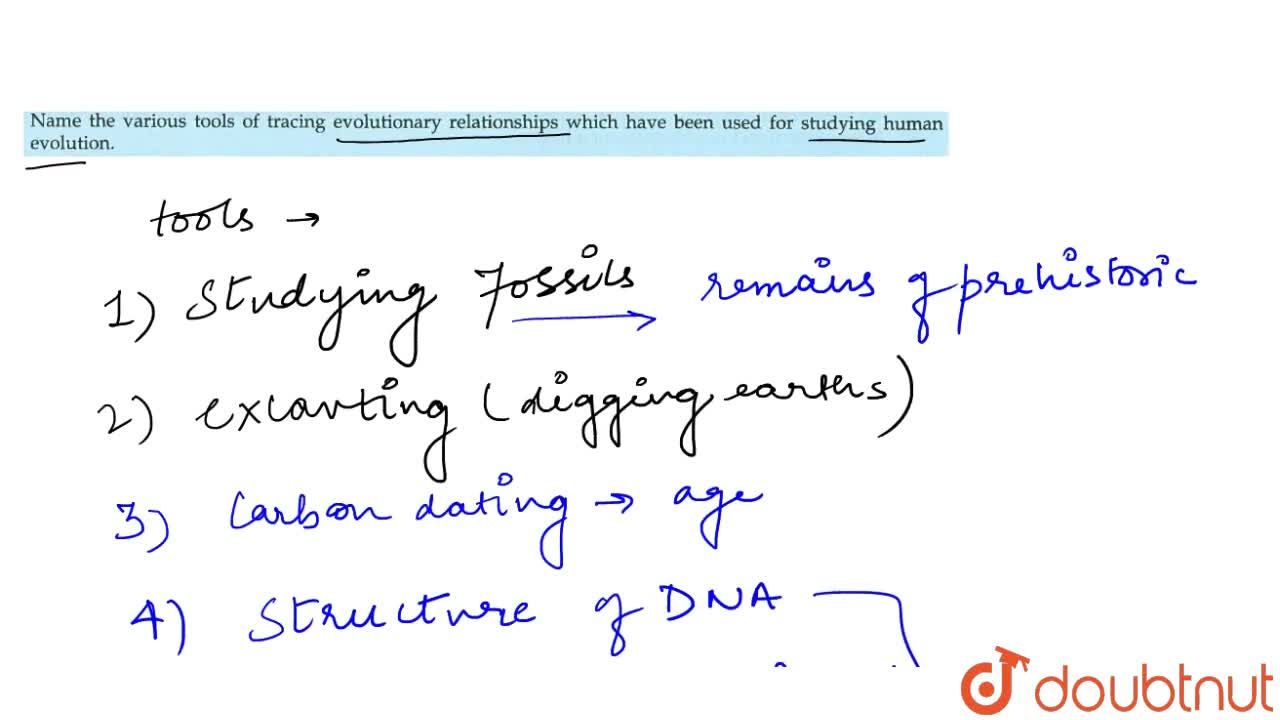 Name the various tools of tracing evolutionary relationships which have been used for studying human
evolution.
tools →
1) Studying Fossils → remains of prehistoric
2) excavting (digging earths)
3) Carbon dating → age
4) Structure of DNA
doubtnut